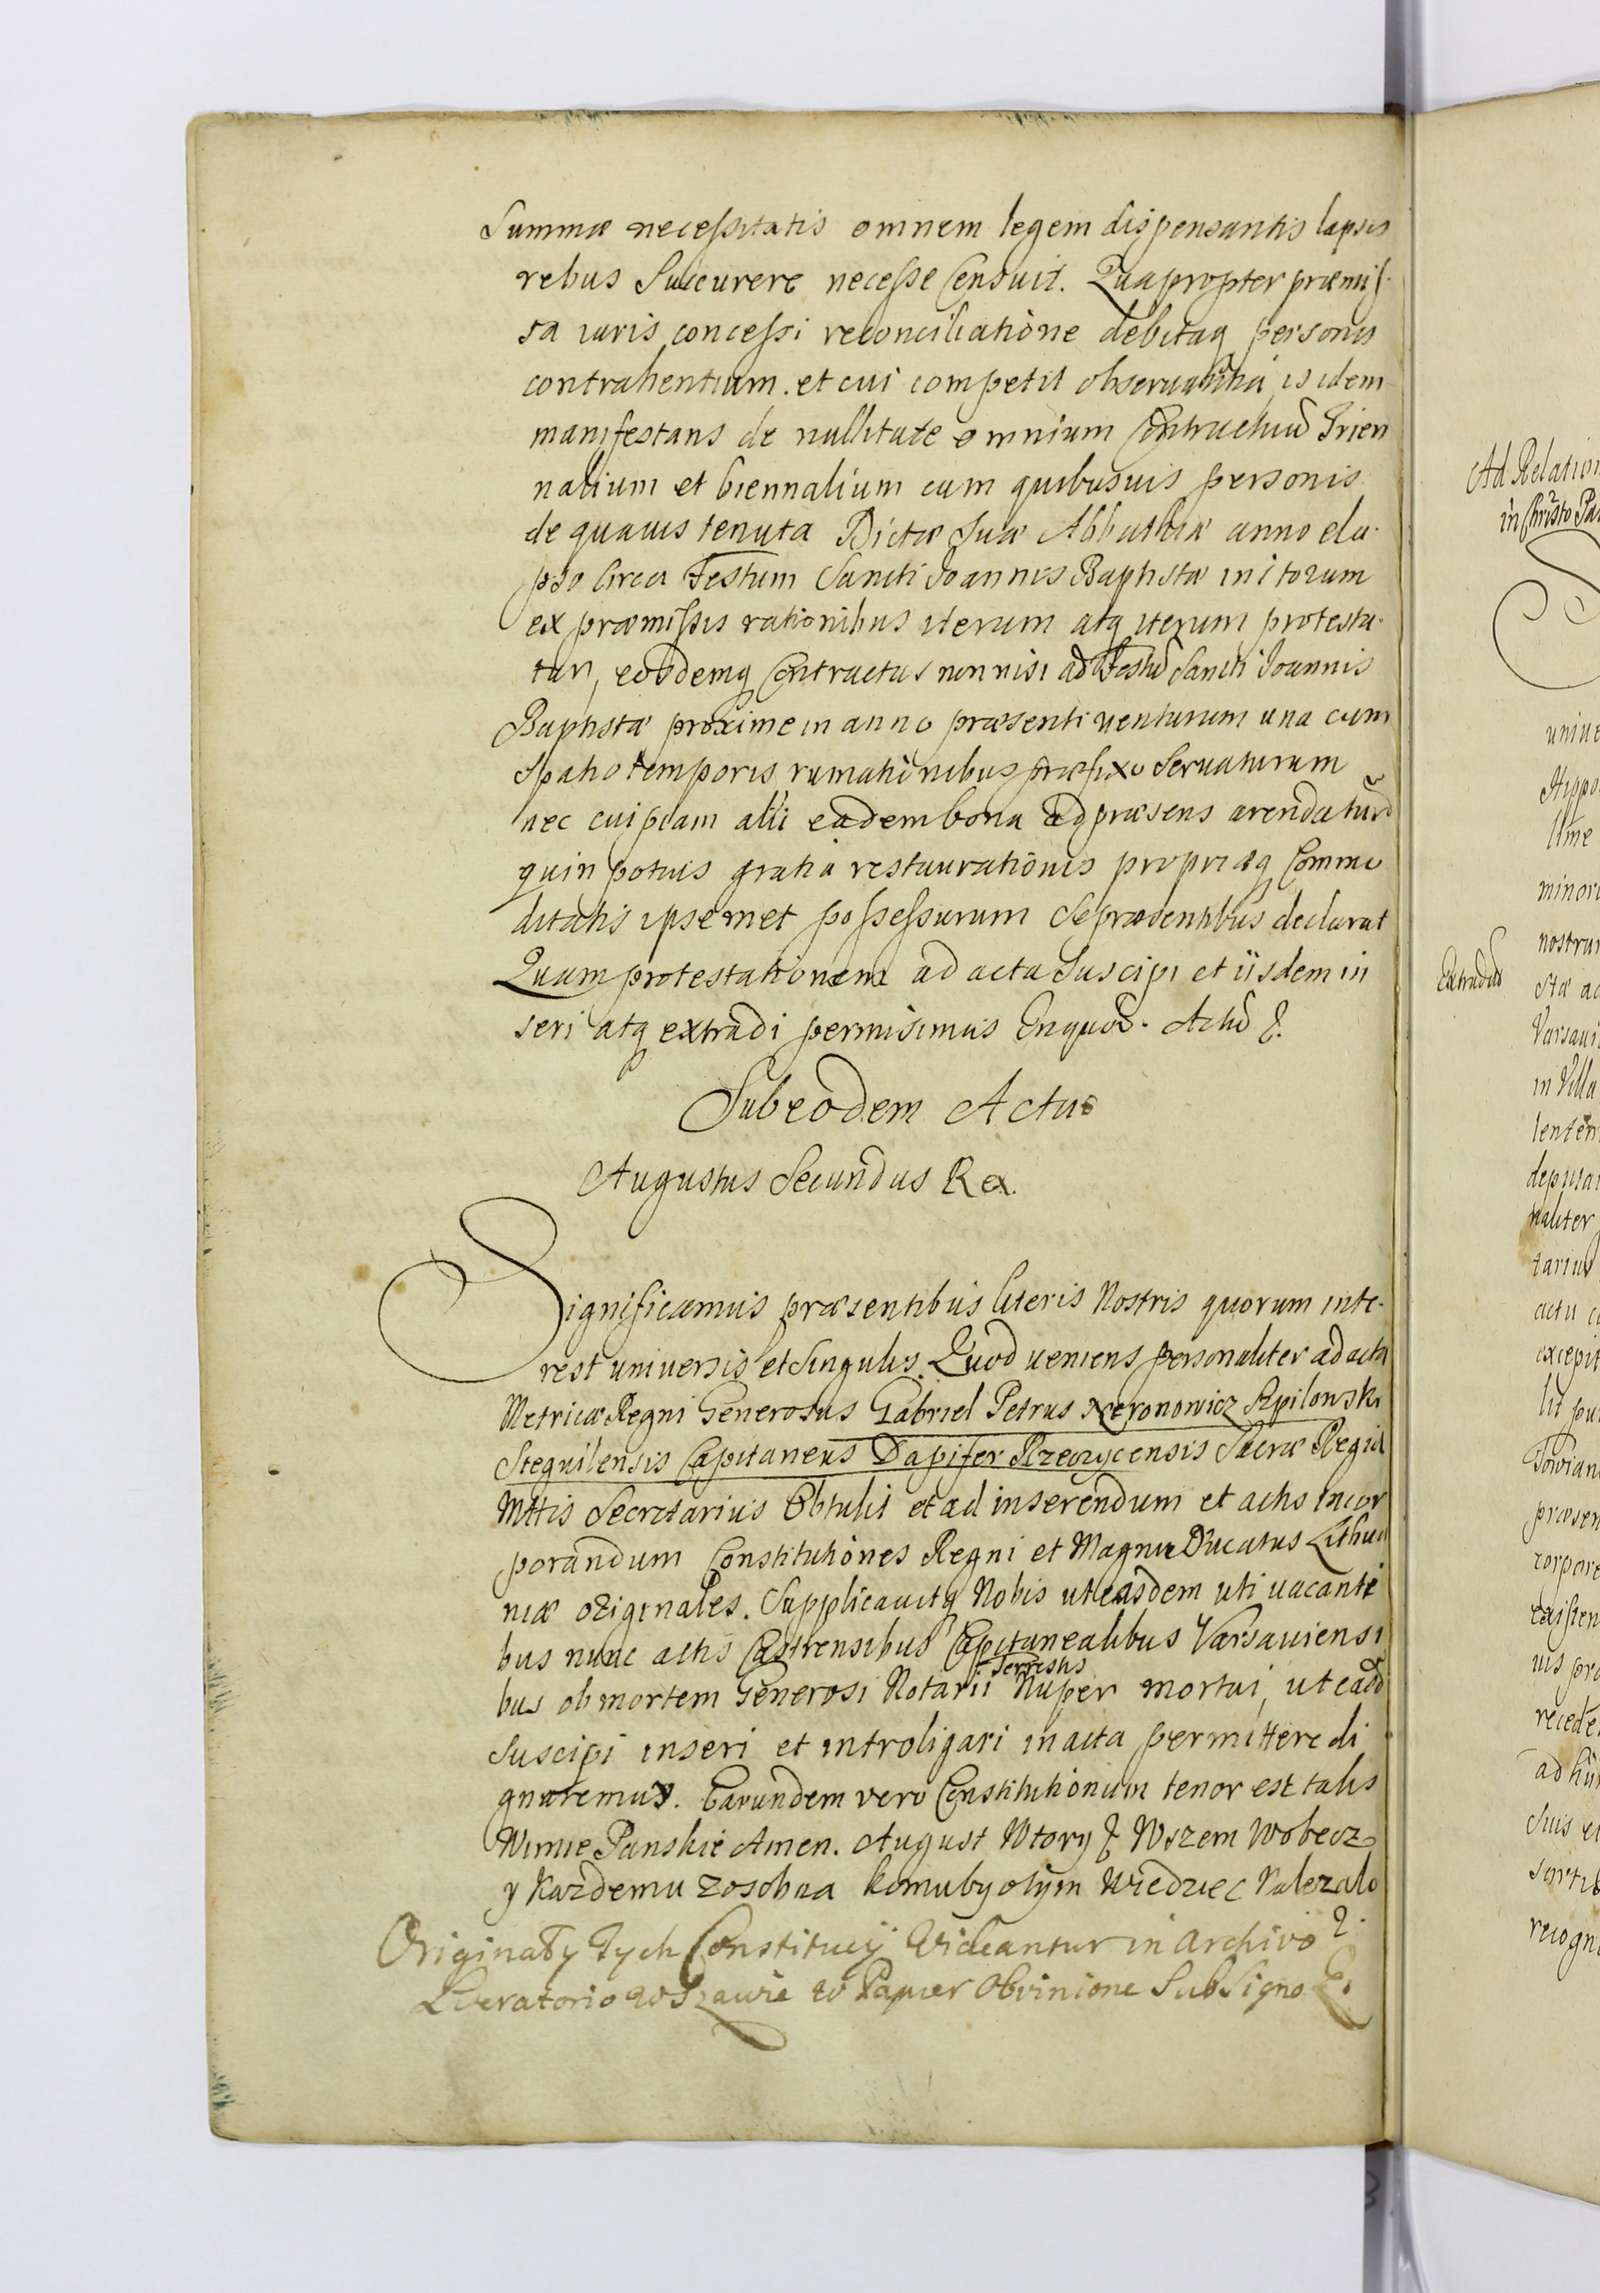 Summæ necessitatis omnem legem dispensantis lapsis
rebus Succurere necesse Censuit. Quapropter præmis-
sa iuris concessi reconciliatione debitaq personis
contrahentium. et cui competit observantia, is idem
manifestans de nullitate omnium Contractuũ Trien
nalium et biennalium cum quibusuis personis
de quauis tenuta Dictæ Suæ Abbathiæ anno ela-
pso circa Festum Sancti Joannis Baptistæ initorum
ex præmissis rationibus iterum atq iterum protesta-
tur, eosdemq Contractus non nisi ad Festũ Sancti Joannis
Baptistæ proxime in anno præsenti venturum una cum
Spatio temporis rumationibus præfixo Servaturum
nec cuipiam alii eadem bona ad præsens arendaturũ
quin potius gratia restaurationis propriæq Commo
ditatis ipsemet possessurum se præsentibus declarat
Quam protestationem ad acta Suscipi et iisdem in
seri atq extradi permisimus Actũ &.
Sub eodem Actu
Augustus Secundus Rex.
Significamus præsentibus literis Nostris quorum inte-
rest universis et Singulis. Quod veniens personaliter ad acta
Metricæ Regni Generosus Gabriel Petrus Szpilowski
Stegvilensis Capitaneus Dapifer Rzeczycensis Sacræ Regiæ
Mttis Secretarius Obtulit et ad inserendum et actis incor
porandum Constitutiones Regni et Magni Ducatus Lithua
niæ originales. Supplicavitq Nobis ut easdem uti vacanti
bus nunc actis Castrensibus Capitanealibus Varsaviensi
bus ob mortem Generosi Notarii Terrestis Nuper mortui, ut eadẽ
suscipi inseri et introligari in acta permittere di
gnaremur. Earundem vero Constitutionum tenor est talis
Wimie Panskie Amen. August Wtory & Wszem Wobecz
y Kazdemu zosobna komuby otym Wiedziec Nalezalo
Originały Tych Constitucÿ Videantur in Archivo
Liberatorio w Papier Obvinione Sub Signo &.
Ad Relation
in Christo Pa
Extradũ
unive
Hippo
minori
nostrar
stæ ac
Varsavi
in Villa
deputa
naliter
tarius
actu c
excepit
Towian
præsen
corpore
existen
vis pro
recede
suis e
recogn